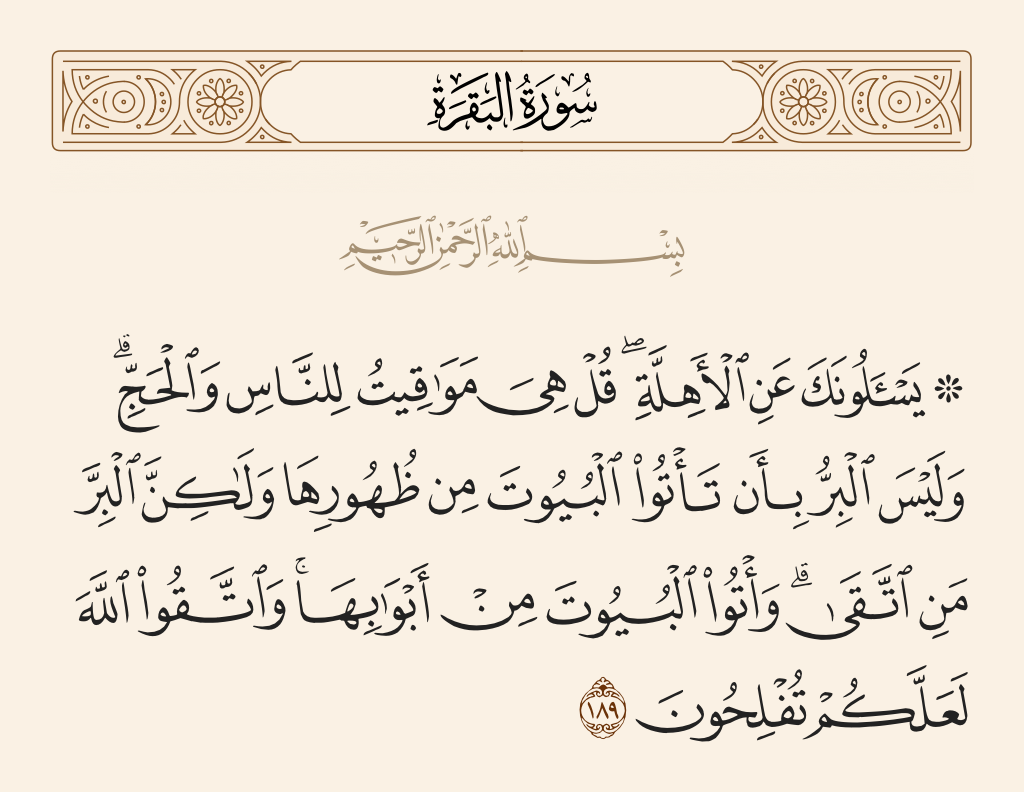 سُورَةُ البَقَرَةِ
بِسْمِ ٱللَّهِ ٱلرَّحْمَٰنِ ٱلرَّحِيمِ
۞ يَسْـَٔلُونَكَ عَنِ ٱلْأَهِلَّةِۖ قُلْ هِىَ مَوَٰقِيتُ لِلنَّاسِ وَٱلْحَجِّۗ
وَلَيْسَ ٱلْبِرُّ بِأَن تَأْتُوا۟ ٱلْبُيُوتَ مِن ظُهُورِهَا وَلَـٰكِنَّ ٱلْبِرَّ
مَنِ ٱتَّقَىٰۗ وَأْتُوا۟ ٱلْبُيُوتَ مِنْ أَبْوَٰبِهَاۚ وَٱتَّقُوا۟ ٱللَّهَ
لَعَلَّكُمْ تُفْلِحُونَ ١٨٩